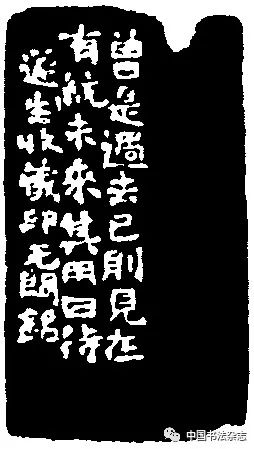 曾是過去已則見在
有統未來其用曰待
收藏印无銘
中国书法杂志